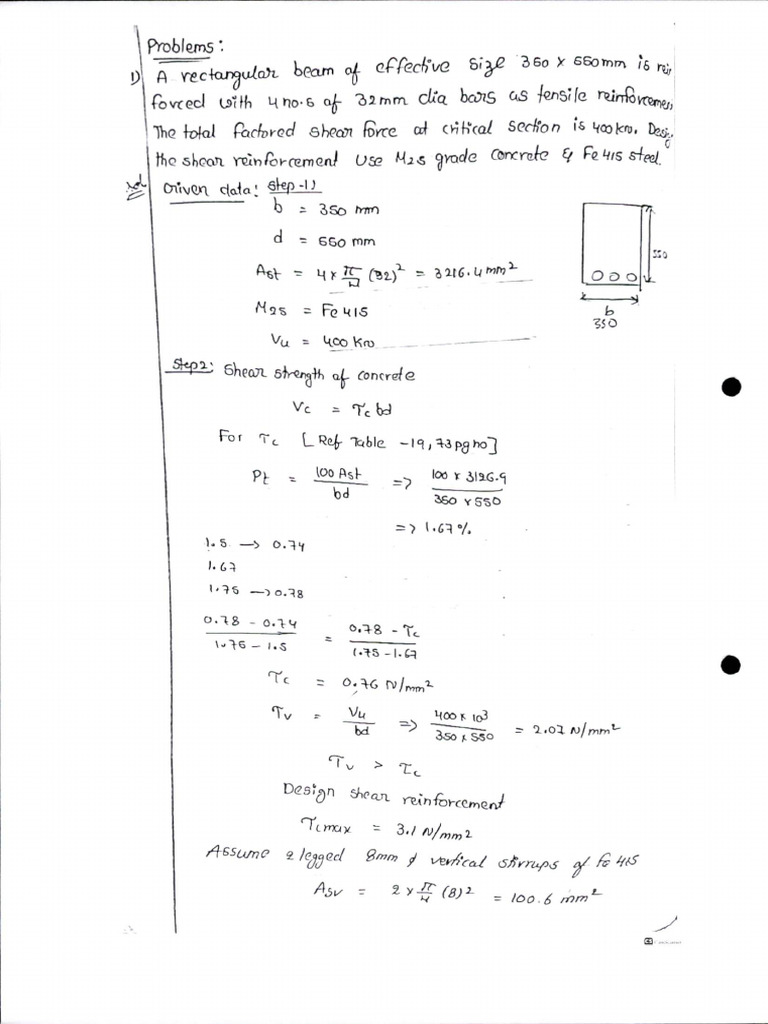 Problems:
1) A rectangular beam of effective size 350 x 550mm is rein
forced with 4 no.s of 32mm dia bars as tensile reinforcement
The total factored shear force at critical section is 400kN. Desig
the shear reinforcement Use M25 grade concrete & Fe415 steel.
Sol Given data: Step-1)
b = 350 mm
d = 550 mm
Ast = 4 x π/4 (32)² = 3216.4 mm²
M25 = Fe415
Vu = 400 KN
550
b
350
Step2: Shear strength of concrete
Vc = Tc bd
For Tc [Ref Table -19, 73 pg no]
Pt = 100 Ast / bd => 100 x 3126.9 / 350 x 550
=> 1.67%
1.5 -> 0.74
1.67
1.75 -> 0.78
0.78 - 0.74 / 1.75 - 1.5 = 0.78 - Tc / 1.75 - 1.67
Tc = 0.76 N/mm²
Tv = Vu / bd => 400 x 10³ / 350 x 550 = 2.07 N/mm²
Tv > Tc
Design shear reinforcement
Tcmax = 3.1 N/mm²
Assume 2 legged 8mm ϕ vertical stirrups of Fe 415
Asv = 2 x π/4 (8)² = 100.6 mm²